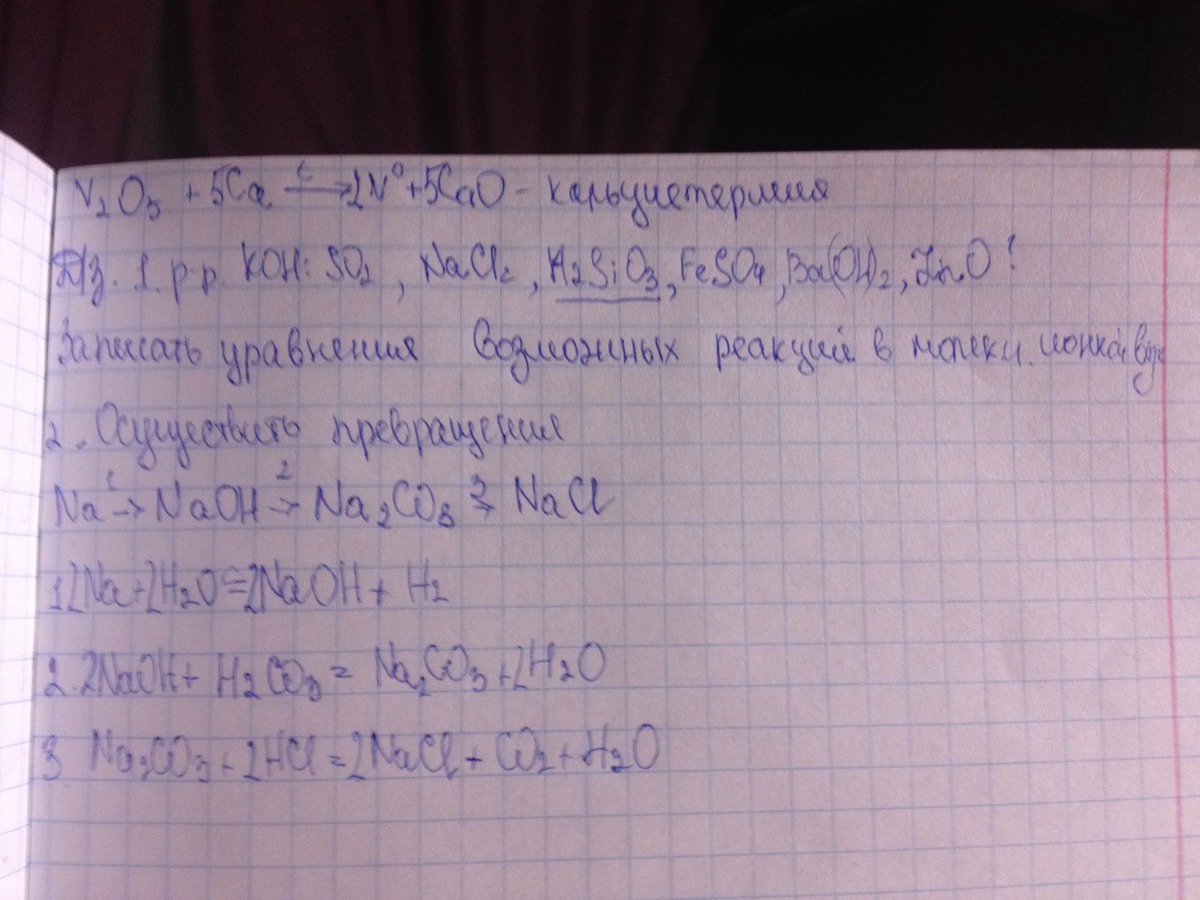 V₂O₅ + 5Ca t⟶ 2V⁰ + 5CaO - кальциетермия
Д/з. 1. р-р. KOH: SO₂, NaCl₂, H₂SiO₃, FeSO₄, Ba(OH)₂, ZnO?
Записать уравнения возможных реакций в молек. ионном виде
2. Осуществить превращения
Na 1→ NaOH 2→ Na₂CO₃ 3→ NaCl
1 2Na + 2H₂O = 2NaOH + H₂
2. 2NaOH + H₂CO₃ = Na₂CO₃ + 2H₂O
3 Na₂CO₃ + 2HCl = 2NaCl + CO₂ + H₂O